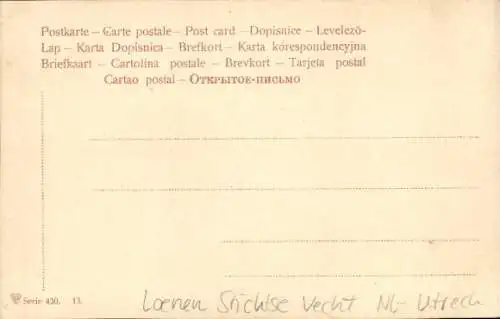 Postkarte – Carte postale – Post card – Dopisnice – Levelezö-
Lap – Karta Dopisnica – Brefkort – Karta kórespondencyjna
Briefkaart – Cartolina postale – Brevkort – Tarjeta postal
Cartao postal – Открытое-письмо
Serie 430. 13.
Loenen Stichtse Vecht NL- Utrech